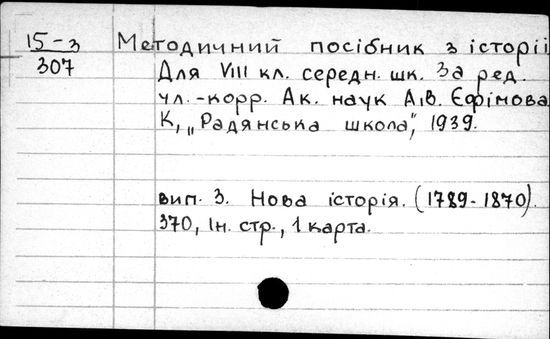 15-3
307
Методичний посібник з історії
Для VIII кл. середн. шк. За ред.
чл.-корр. Ак. наук А.В. Єфімова
К, „Радянська школа", 1939.
вип. 3. Нова історія. (1789-1870).
370, Ін. стр., 1 карта.